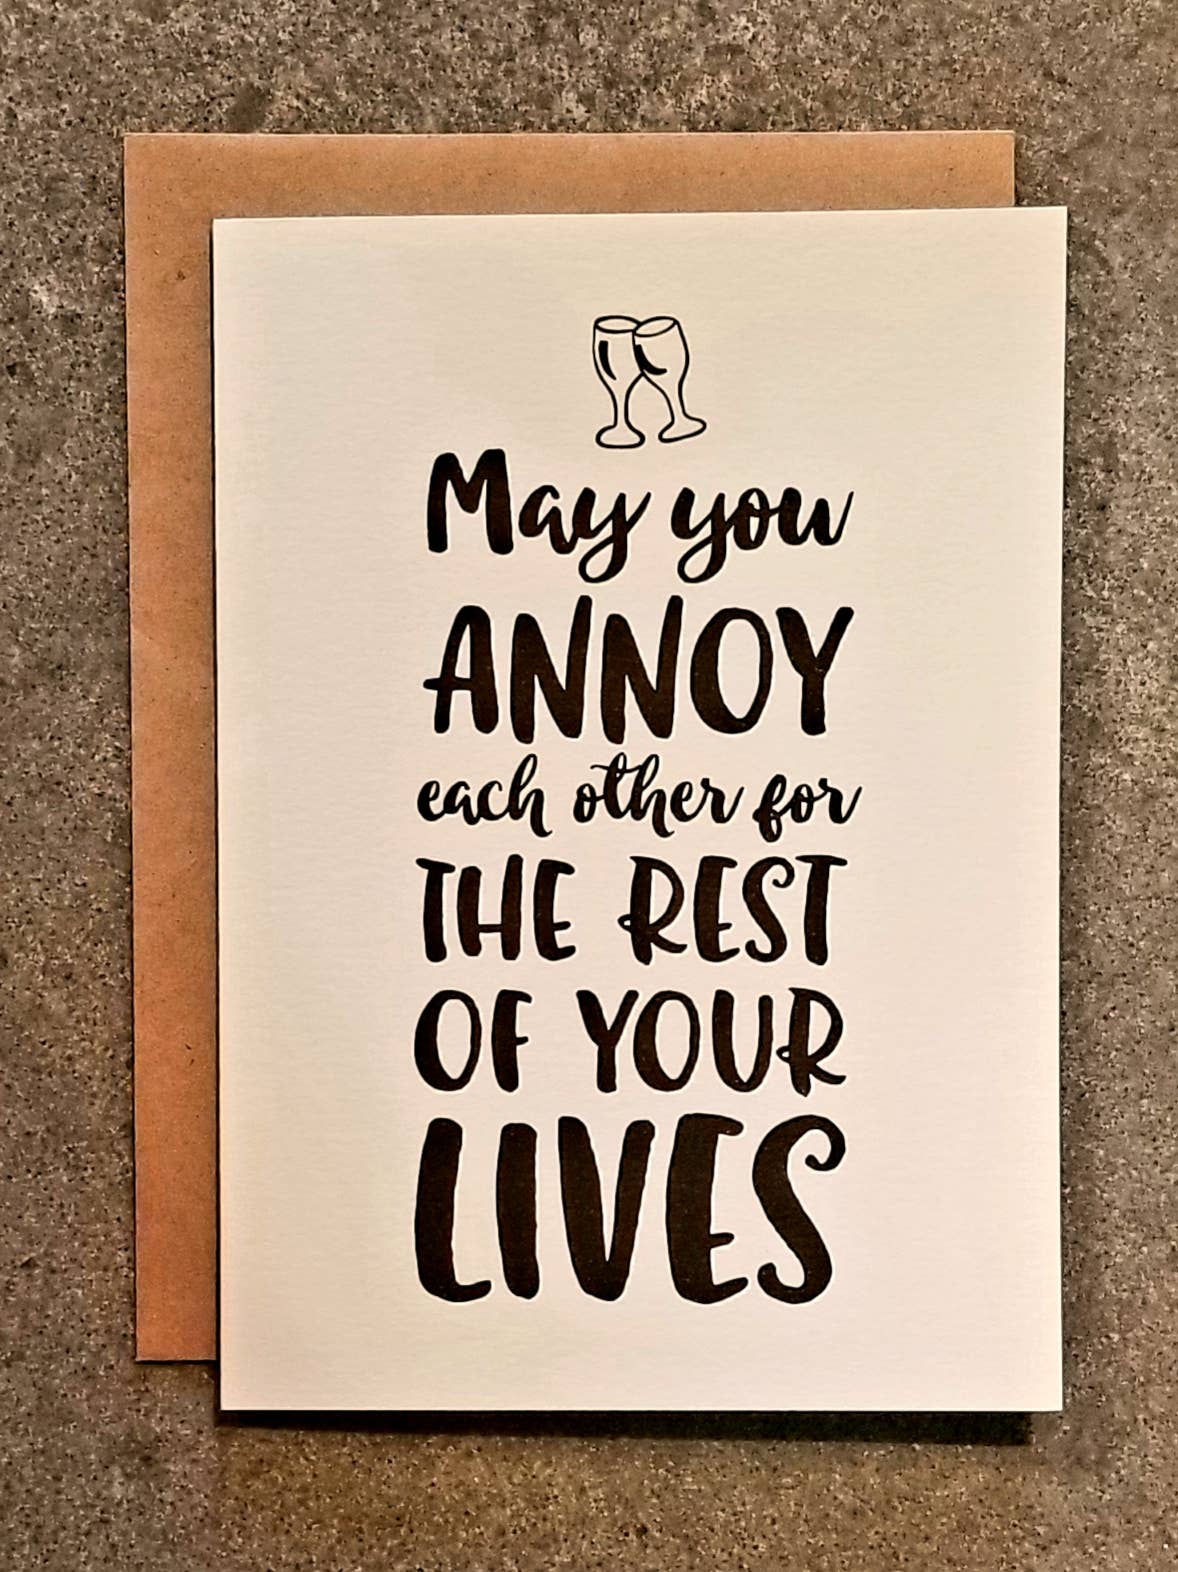 May you
ANNOY
each other for
THE REST
OF YOUR
LIVES